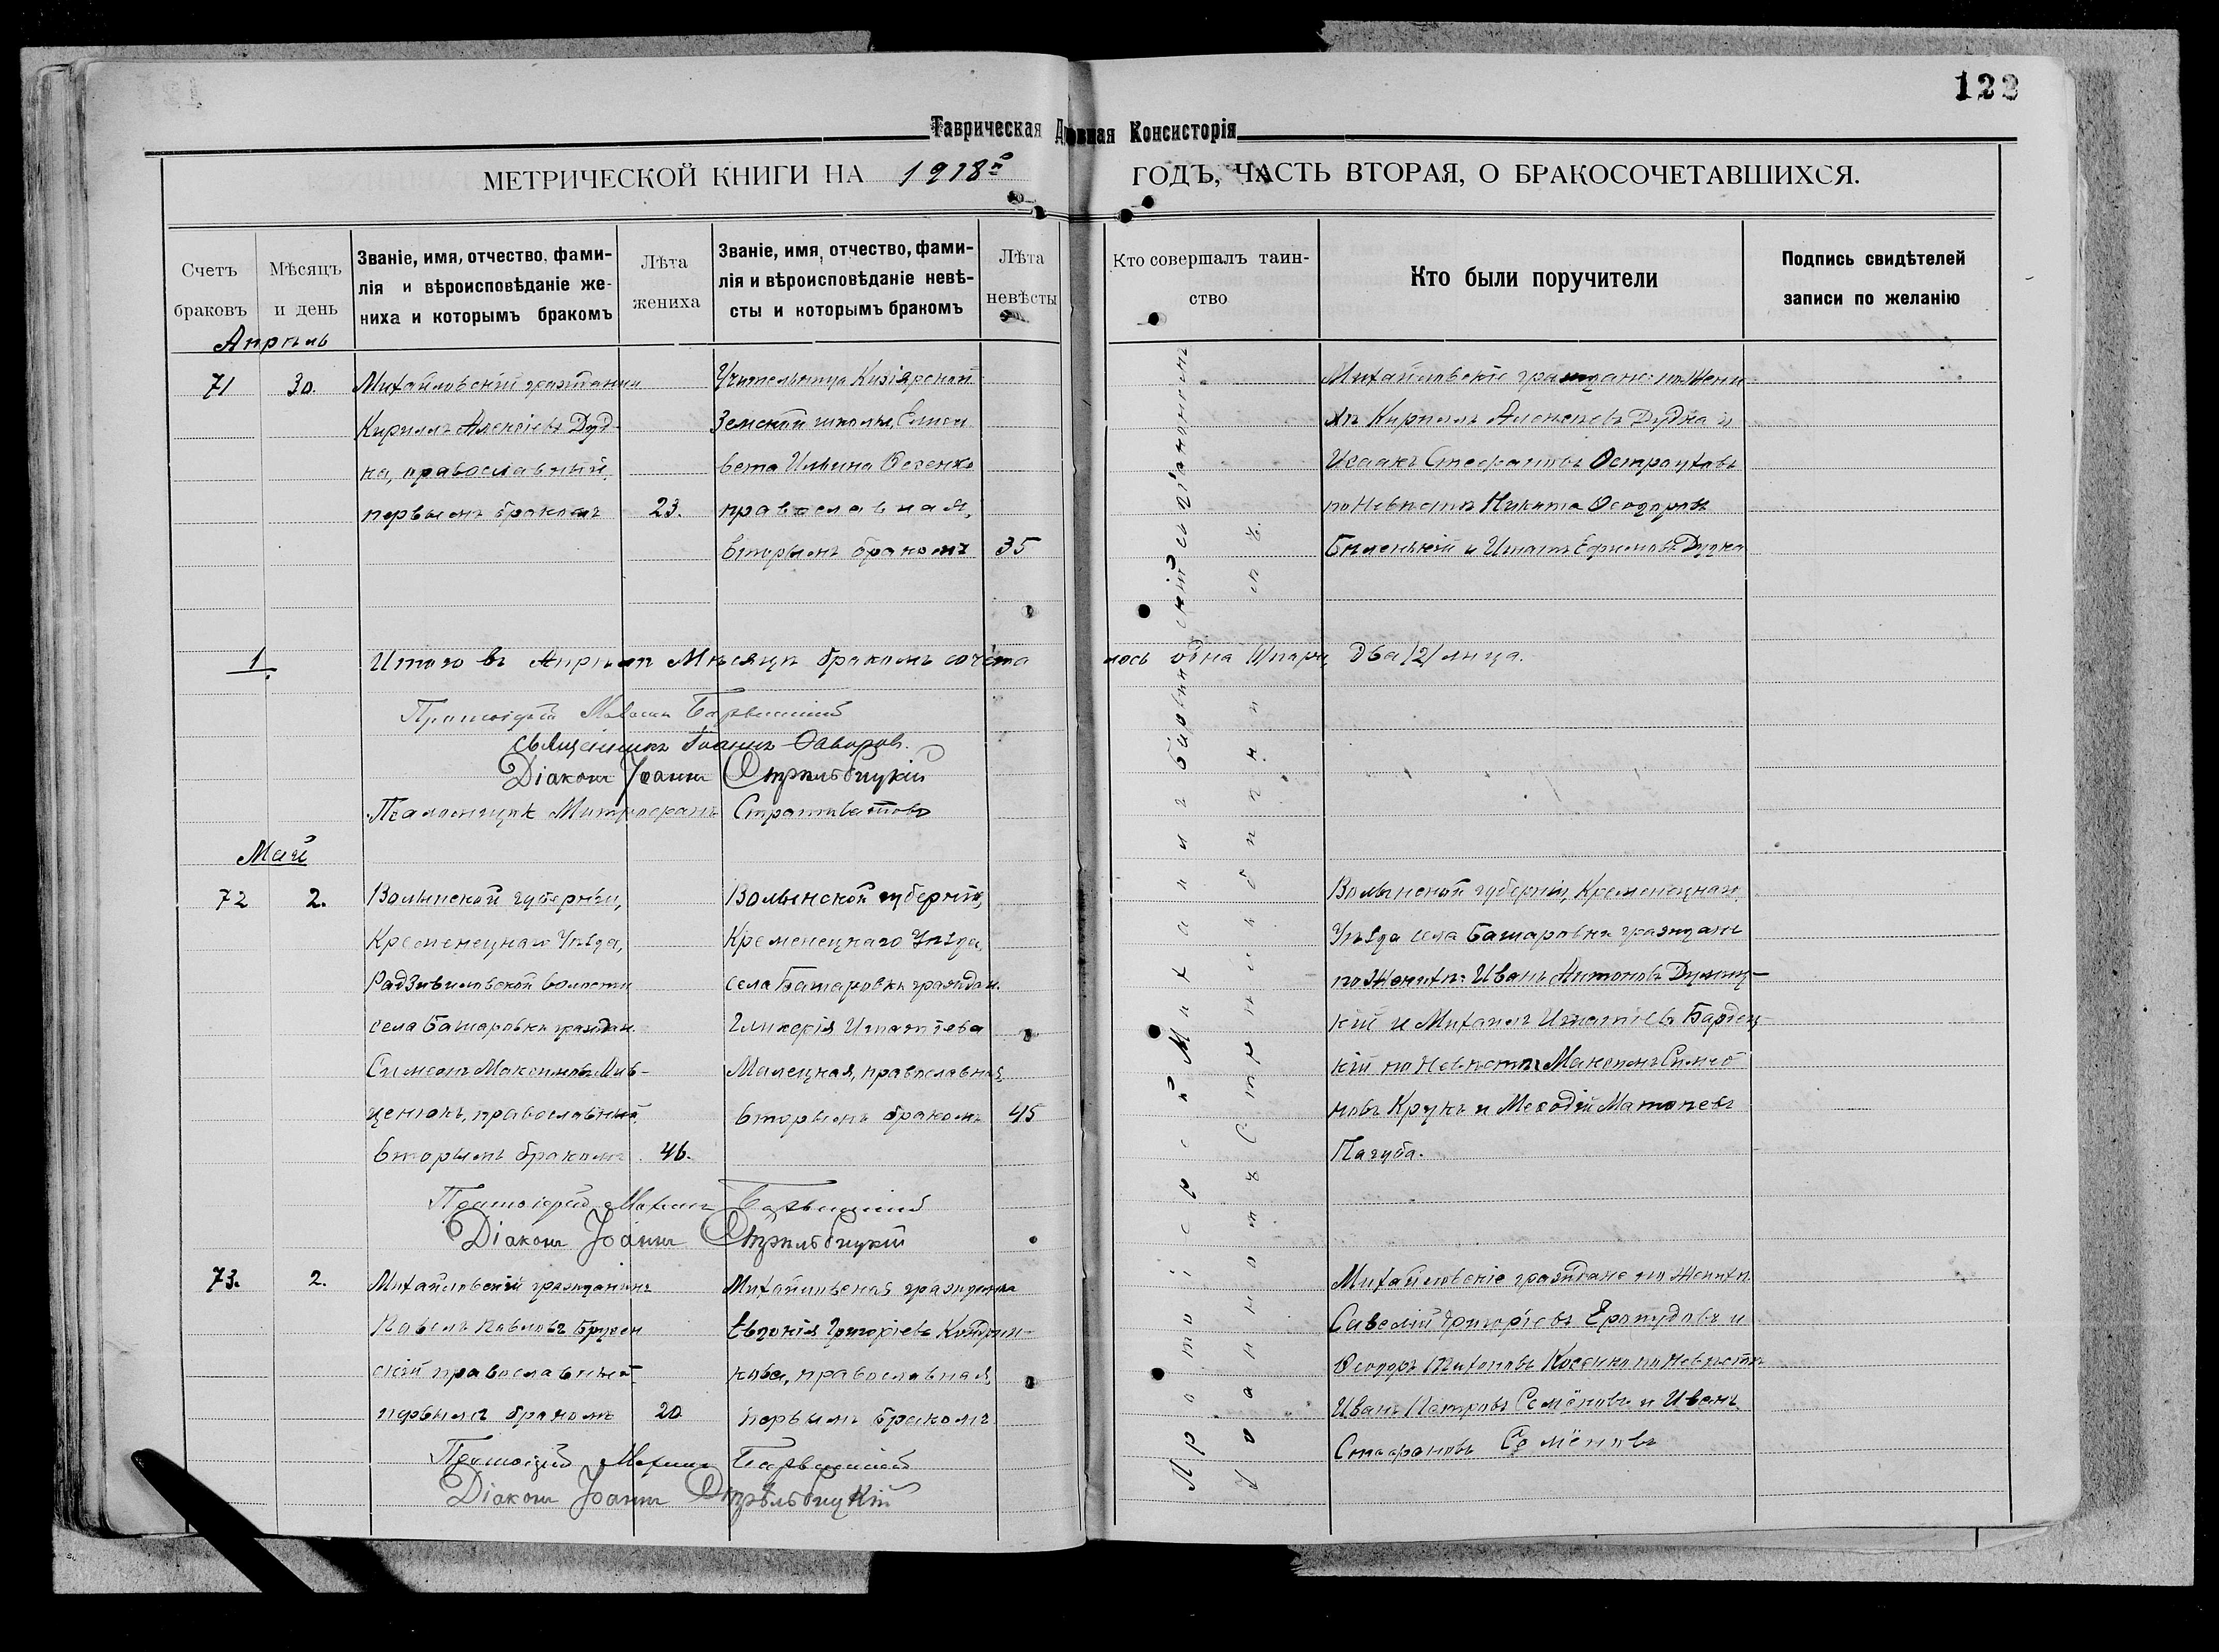 122
Таврическая Духовная Консисторія
МЕТРИЧЕСКОЙ КНИГИ НА 1918й ГОДЪ, ЧАСТЬ ВТОРАЯ, О БРАКОСОЧЕТАВШИХСЯ.
Счетъ браковъ
Мѣсяцъ и день
Званіе, имя, отчество, фами-
лія и вѣроисповѣданіе же-
ниха и которымъ бракомъ
Лѣта жениха
Званіе, имя, отчество, фами-
лія и вѣроисповѣданіе невѣ-
сты и которымъ бракомъ
Лѣта невѣсты
Кто совершалъ таин-
ство
Кто были поручители
Подпись свидѣтелей
записи по желанію
Апрѣль
71
30.
Михайловскій гражданин
Кирилъ Алексіевъ Дуд-
ка, православный,
первымъ бракомъ
23.
Учительница Кизіярской
Земской школы, Елиса
вета Ильина Фесенко
православная,
вторымъ бракомъ
35
Михайловскіе граждане: по Жени
хѣ Кирилъ Алексѣевъ Дудка и
Исаакъ Стефановъ Остроуховъ
по Невѣстѣ Никита Феодоровъ
Бѣленькій и Игнатъ Ефимовъ Дудка
1
Итого въ Апрѣлѣ Мѣсяцѣ бракомъ сочета
лось одна /1/ пара, два /2/ лица.
Протоіерей Михаилъ
Священникъ Іоаннъ
Діаконъ Іоаннъ Стрѣльбицкій
Псаломщик Митрофанъ Стратилатовъ
Май
72
2.
Волынской губерніи,
Кременецкаго Уѣзда,
Радзивиловской волости
села Башаровки граждан.
Симеонъ Максимовъ Лив-
ценюкъ, православный,
вторымъ бракомъ
46.
Волынской губерніи,
Кременецкаго Уѣзда,
села Башаровки граждан.
Гликерія Игнатіева
Малецкая, православная,
вторымъ бракомъ
45
Волынской губерніи, Кременецкаго
Уѣзда села Башаровки граждане
по Женихѣ: Иванъ Антоновъ
кій и Михаилъ Игнатіевъ
кій по Невѣстѣ Максимъ Симео
новъ Крукъ и Мефодій Матѳеевъ
Пагуба.
Протоіерей Михаилъ
Діаконъ Іоаннъ Стрѣльбицкій
73.
2.
Михайловскій гражданинъ
Павелъ Павловъ Брусен
скій православный,
первымъ бракомъ
20
Михайловская гражданка
Евдокія Григоріева Кондрат-
кова, православная,
первымъ бракомъ
Михайловскіе граждане по Женихѣ
Савелій Григоріевъ и
Феодоръ Тихоновъ Косенко по Невѣстѣ
Иванъ Петровъ Семёновъ и Иванъ
Стефановъ Семёновъ
Протоіерей Михаилъ
Діаконъ Іоаннъ Стрѣльбицкій
Протоіерей Михаилъ съ діакономъ
Іоанномъ Стрѣльбицкимъ